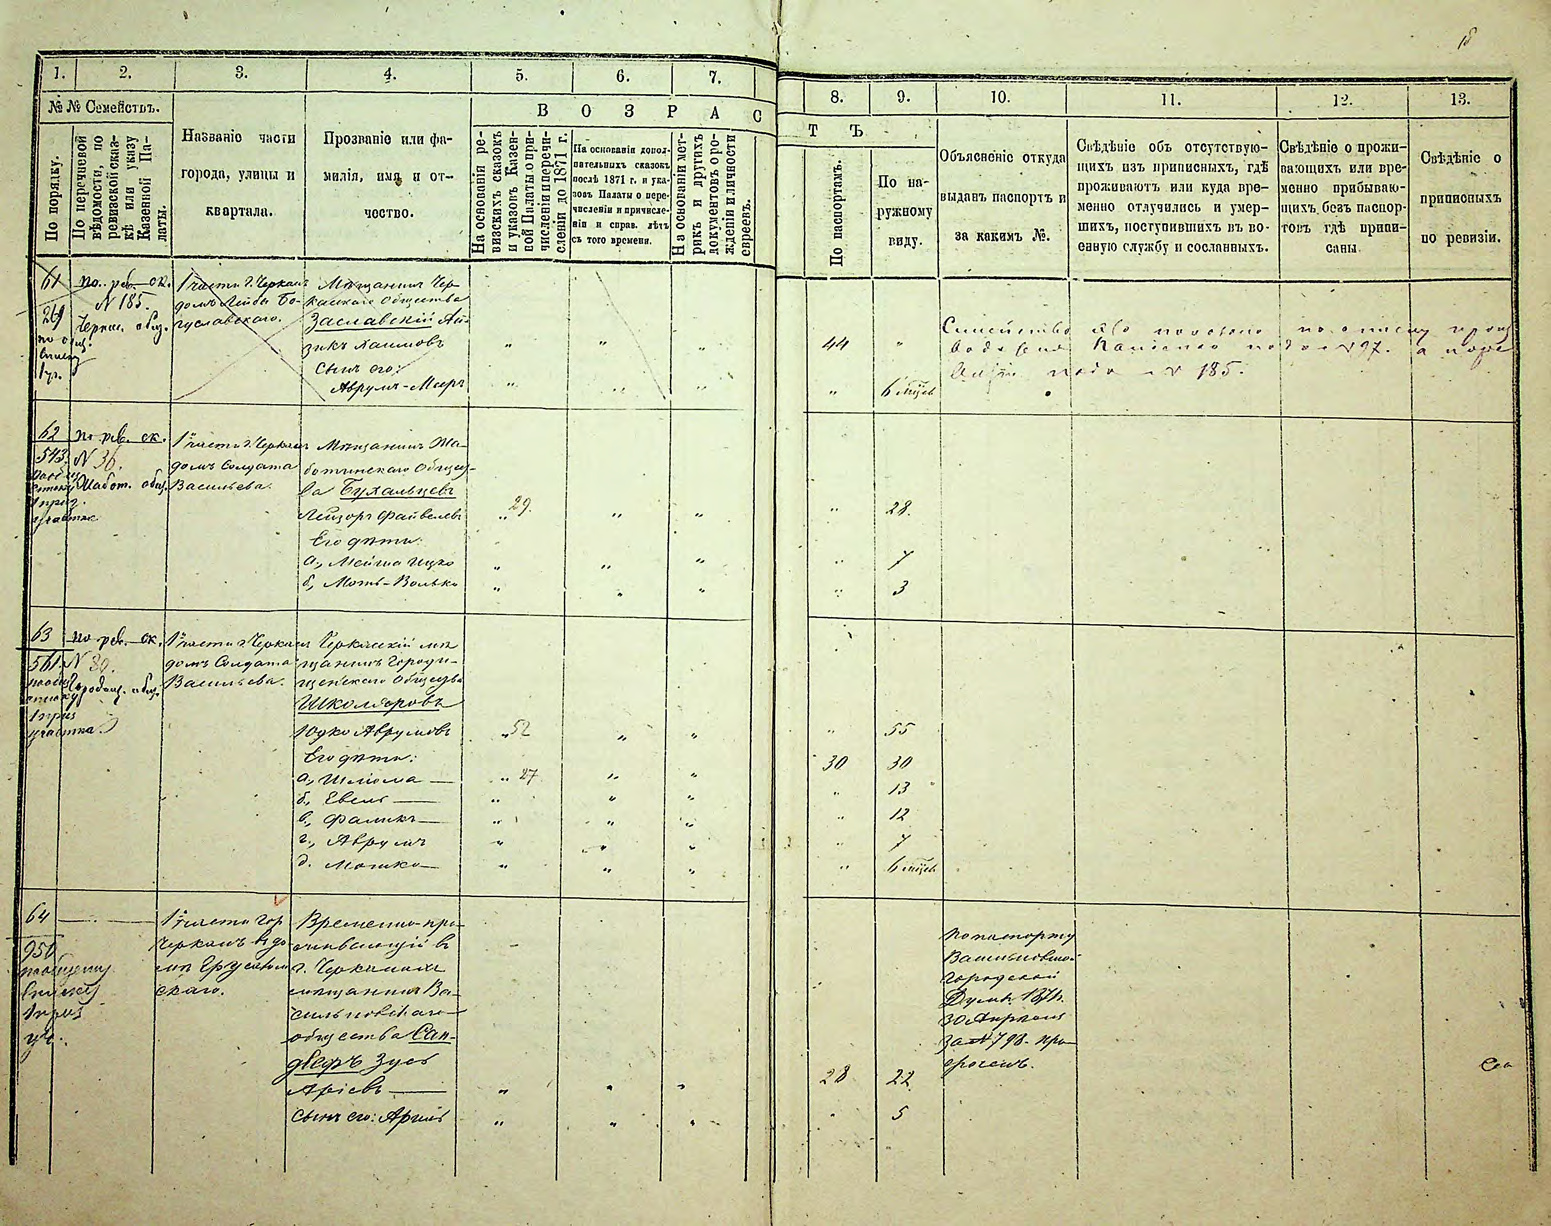 18
1.
2.
3.
4.
5.
6.
7.
8.
9.
10.
11.
12.
13.
№ № Семействъ.
В О З Р А С
Т Ъ
По порядку.
По перечневой
вѣдомости, по
ревизской сказ-
кѣ или указу
Казенной Па-
латы.
Названіе части
города, улицы и
квартала.
Прозваніе или фа-
милія, имя и от-
чество.
На основаніи ре-
визскихъ сказокъ
и указовъ Казен-
ной Палаты о при-
численіи и перечи-
сленіи до 1871 г.
На основаніи допол-
нительныхъ сказокъ
послѣ 1871 г. и ука-
зовъ Палаты о пере-
численіи и причисле-
ніи и справ. лѣтъ
съ того времени.
На основаніи мет-
рикъ и другихъ
документовъ о ро-
жденіи и личности
евреевъ.
По паспортамъ.
По на-
ружному
виду.
Объясненіе откуда
выданъ паспортъ и
за какимъ №.
Свѣдѣніе объ отсутствую-
щихъ изъ приписныхъ, гдѣ
проживаютъ или куда вре-
менно отлучились и умер-
шихъ, поступившихъ въ во-
енную службу и сосланныхъ.
Свѣдѣніе о прожи-
вающихъ или вре-
менно прибываю-
щихъ безъ паспор-
товъ гдѣ припи-
саны.
Свѣдѣніе о
приписныхъ
по ревизіи.
61
269
по рев. ск.
N 185.
Черкас. общ.
1 части г. Черкасъ
домъ Лейбы Бо-
гуславскаго.
Мѣщанинъ Чер-
каскаго Общества
Заславскій Ай-
зикъ Хаимовъ
сынъ его:
Аврумъ-Мееръ
44
6 мѣсяц
N 97.
N 185.
62
543
по рев. ск.
N 36.
Жабот. общ.
1 части г. Черкасъ
домъ Солдата
Васильева.
Мѣщанинъ Жа-
ботинскаго Общес-
ва Бухальцевъ
Лейзоръ Файвелевъ
29.
28.
Его дѣти:
а, Мойша Ицко
7
б, Моть-Волько
3
63
561
по рев. ск.
N 89.
Городищ. общ.
участка
1 части г. Черкасъ
домъ Солдата
Васильева.
Черкасскій мѣ
щанинъ Городи-
щенскаго Общества
Школяровъ
Юдко Аврумовъ
52
55
Его дѣти:
а, Шліома
27
30
30
б, Евель
13
в, Фаликъ
12
г, Аврумъ
7
д. Мошко
6 мѣсяц
64
950
1 части гор
Черкасъ въ до
скаго.
Временно-про-
живающій въ
г. Черкасахъ
мѣщанинъ Ва-
сильковскаго
общества Сан-
дверъ Зусь
Аріевъ
28
22
сынъ его: Арилъ
5
По паспорту
Васильковской
городской
Думы 187
30 Апрѣля
за N 798. про-
срочен.